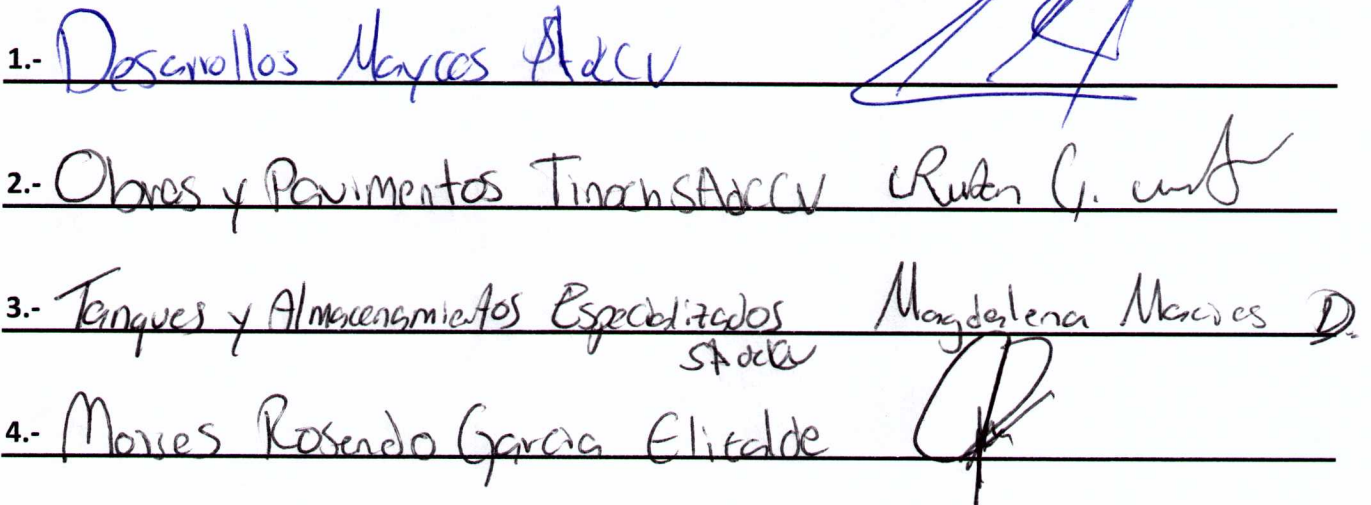 1.- Desarrollos Maycos SAdCV
2.- Obras y Pavimentos Tinoch SAdCCV Ruben G.
3.- Tanques y Almacenamientos Especializados Magdalena Macias D.
SAdeCV
4.- Moises Rosendo Garcia Elizalde